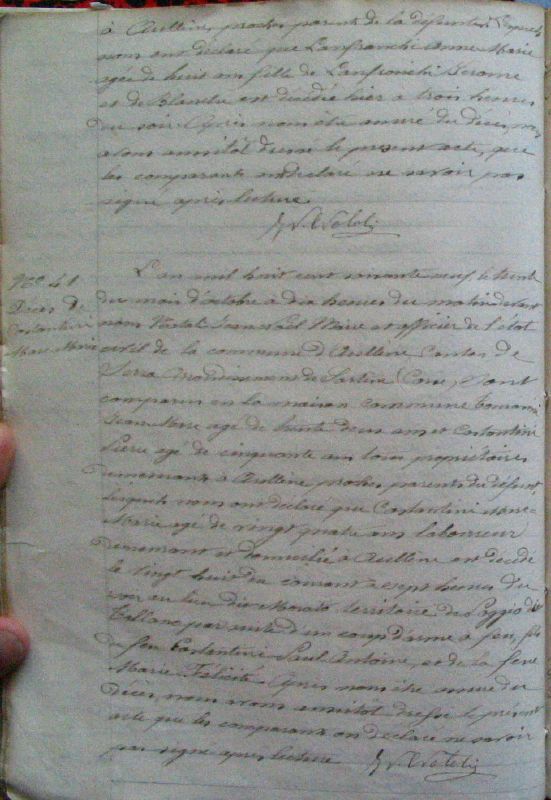 à Aullène, proches parents de la défunte, lesquels
nous ont déclaré que Lanfranchi Anne Marie
agée de huit ans fille de Lanfranchi Jerome
et de Blanche est décédée hier à trois heures
du soir. Après nous être assuré du décès, nous
avons aussitôt dressé le présent acte, que
les comparants ont déclaré ne savoir pas
signé après lecture.
N° 41
Décès de
Costantini
Marc Marie
L'an mil huit cent soixante neuf, le trente
du mois d'octobre à dix heures du matin devant
nous Jean Maire et officier de l'état
civil de la commune d'Aullène, Canton de
Serra Arrondissement de Sartène (Corse), sont
comparus en la maison commune
Jean Marc agé de trente deux ans et Costantini
Pierre agé de cinquante ans tous propriétaires
demeurants à Aullène proches parents du défunt,
lesquels nous ont déclaré que Costantini Marc
Marie agé de vingt quatre ans laboureur
demeurant et domicilié à Aullène est décédé
le vingt huit du courant à sept heures du
soir au lieu dit territoire de Poggio di
Tallano par suite d'un coup d'arme à feu, fils
de feu Costantini Paul Antoine, et de la feue
Marie Félicité. Après nous être assuré du
Décès, nous avons aussitôt dressé le présent
acte que les comparants ont déclaré ne savoir
pas signé après lecture